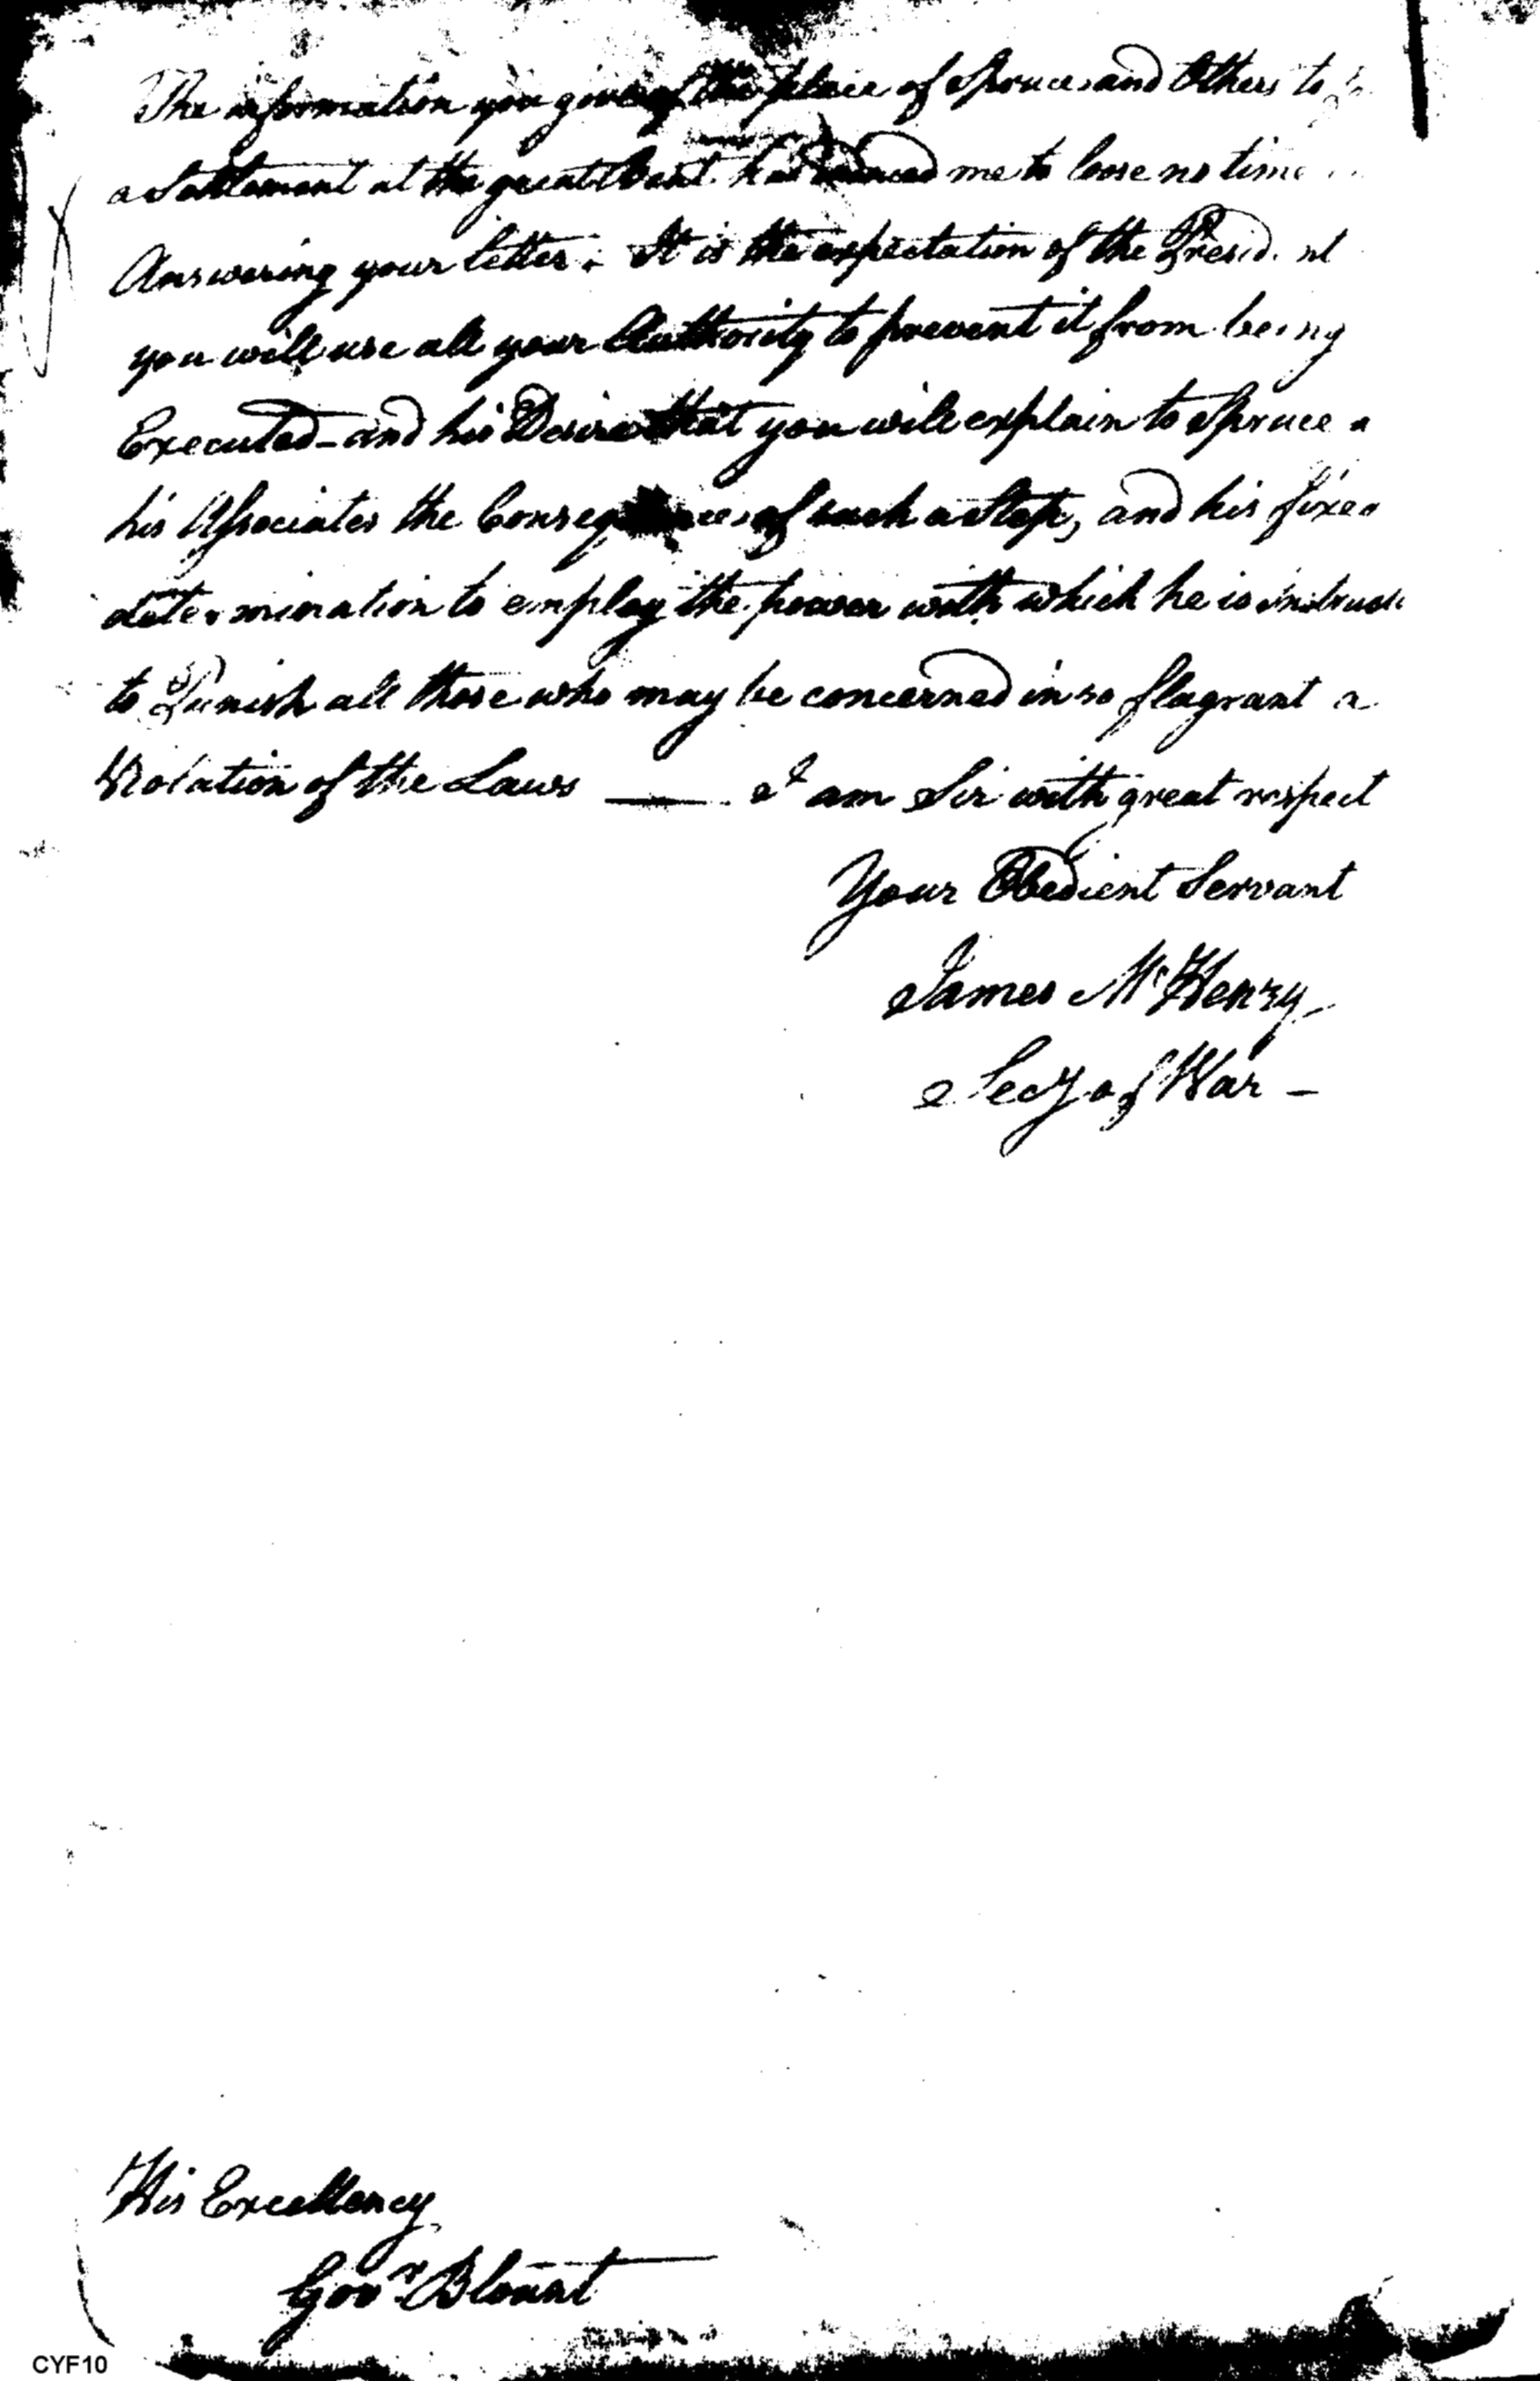 The information you give of the place of Spruce and Others to
a Settlement at the great Bent has induced me to loose no time
Answering your letter. It is the expectation of the President
you will use all your Authority to prevent it from being
Executed - and his Desire that you will explain to Spruce
his Associates the Consequences of such a Step, and his fixed
determination to employ the power with which he is
to Punish all those who may be concerned in so flagrant a
Violation of the Laws — I am Sir with great respect
Your Obedient Servant
James McHenry
Secy of War -
His Excellency
Govr. Blount
CYF10